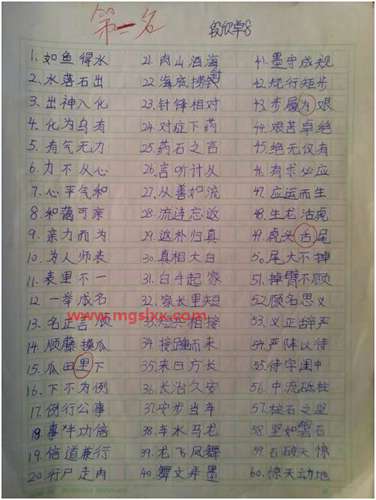 第一名
段欣宇
1. 如鱼得水
2. 水落石出
3. 出神入化
4. 化为乌有
5. 有气无力
6. 力不从心
7. 心平气和
8. 和蔼可亲
9. 亲力而为
10. 为人师表
11. 表里不一
12. 一举成名
13. 名正言顺
14. 顺藤摸瓜
15. 瓜田里下
16. 下不为例
17. 例行公事
18. 事半功倍
19. 倍道兼行
20. 行尸走肉
21. 肉山酒海
22. 海底捞针
23. 针锋相对
24. 对症下药
25. 药石之言
26. 言听计从
27. 从善如流
28. 流连忘返
29. 返朴归真
30. 真相大白
31. 白手起家
32. 家长里短
33. 短兵相接
34. 接踵而来
35. 来日方长
36. 长治久安
37. 安步当车
38. 车水马龙
39. 龙飞凤舞
40. 舞文弄墨
41. 墨守成规
42. 规行矩步
43. 步履为艰
44. 艰苦卓绝
45. 绝无仅有
46. 有求必应
47. 应运而生
48. 生龙活虎
49. 虎头古尾
50. 尾大不掉
51. 掉臂不顾
52. 顾名思义
53. 义正辞严
54. 严阵以待
55. 待字闺中
56. 中流砥柱
57. 柱石之坚
58. 坚如磐石
59. 石破天惊
60. 惊天动地
www.mgslxx.com